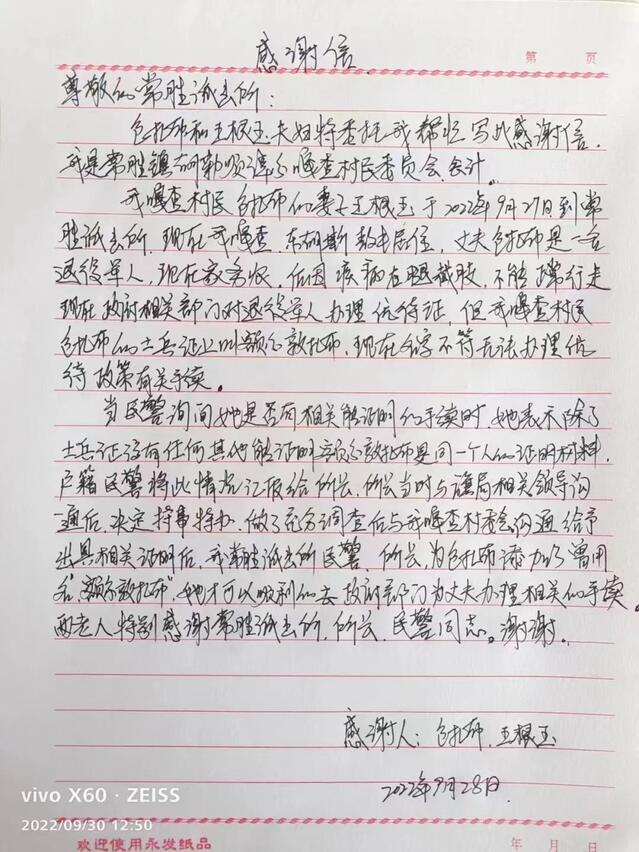 第 页
感谢信
尊敬的常胜派出所:
包扎布和王根玉夫妇特委托我帮忙写此感谢信.
我是常胜镇 嘎查村民委员会会计.
我嘎查村民包扎布的妻子王根玉于2022年9月27日到常
胜派出所.现在我嘎查. 居住,丈夫包扎布是一名
退役军人,现在家务农,但因疾病右腿截肢,不能 行走
现在政府相关部门对退役军人办理优待证,但我嘎查村民
包扎布的士兵证上叫额尔敦扎布.现在名字不符无法办理优
待政策有关手续。
当民警询问她是否有相关能证明的手续时,她表示除了
士兵证没有任何其他能证明额尔敦扎布是同一个人的证明材料,
户籍民警将此情况汇报给所长,所长当时与 局相关领导沟
通后,决定特事特办,做了 调查后与我嘎查村 沟通给予
出具相关证明后,我常胜派出所民警、所长,为包扎布添加了曾用
名“额尔敦扎布”她才可以顺利的去政府部门为丈夫办理相关的手续.
两老人特别感谢常胜派出所,所长、民警同志。谢谢。
感谢人:包扎布.王根玉
2022年9月28日.
vivo X60 · ZEISS
2022/09/30 12:50
欢迎使用永发纸品
年 月 日